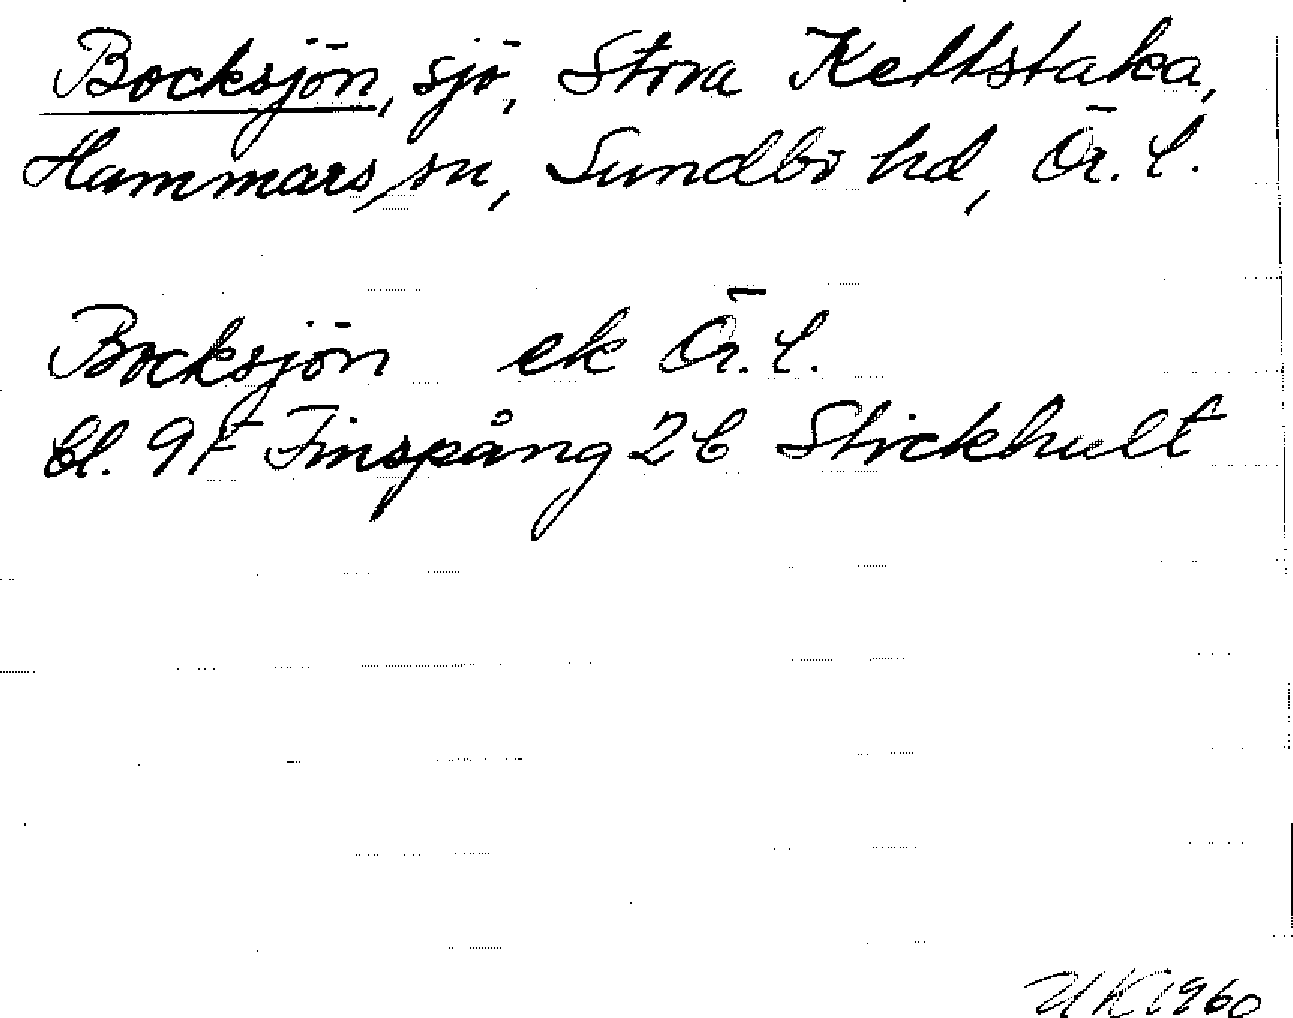 Bocksjön, sjö, Stora Kettstaka,
Hammars sn, Sundbo hd, Ör. l.
Bocksjön ek Ör. l.
bl. 9F Finspång 2c Stickhult
UK 1960